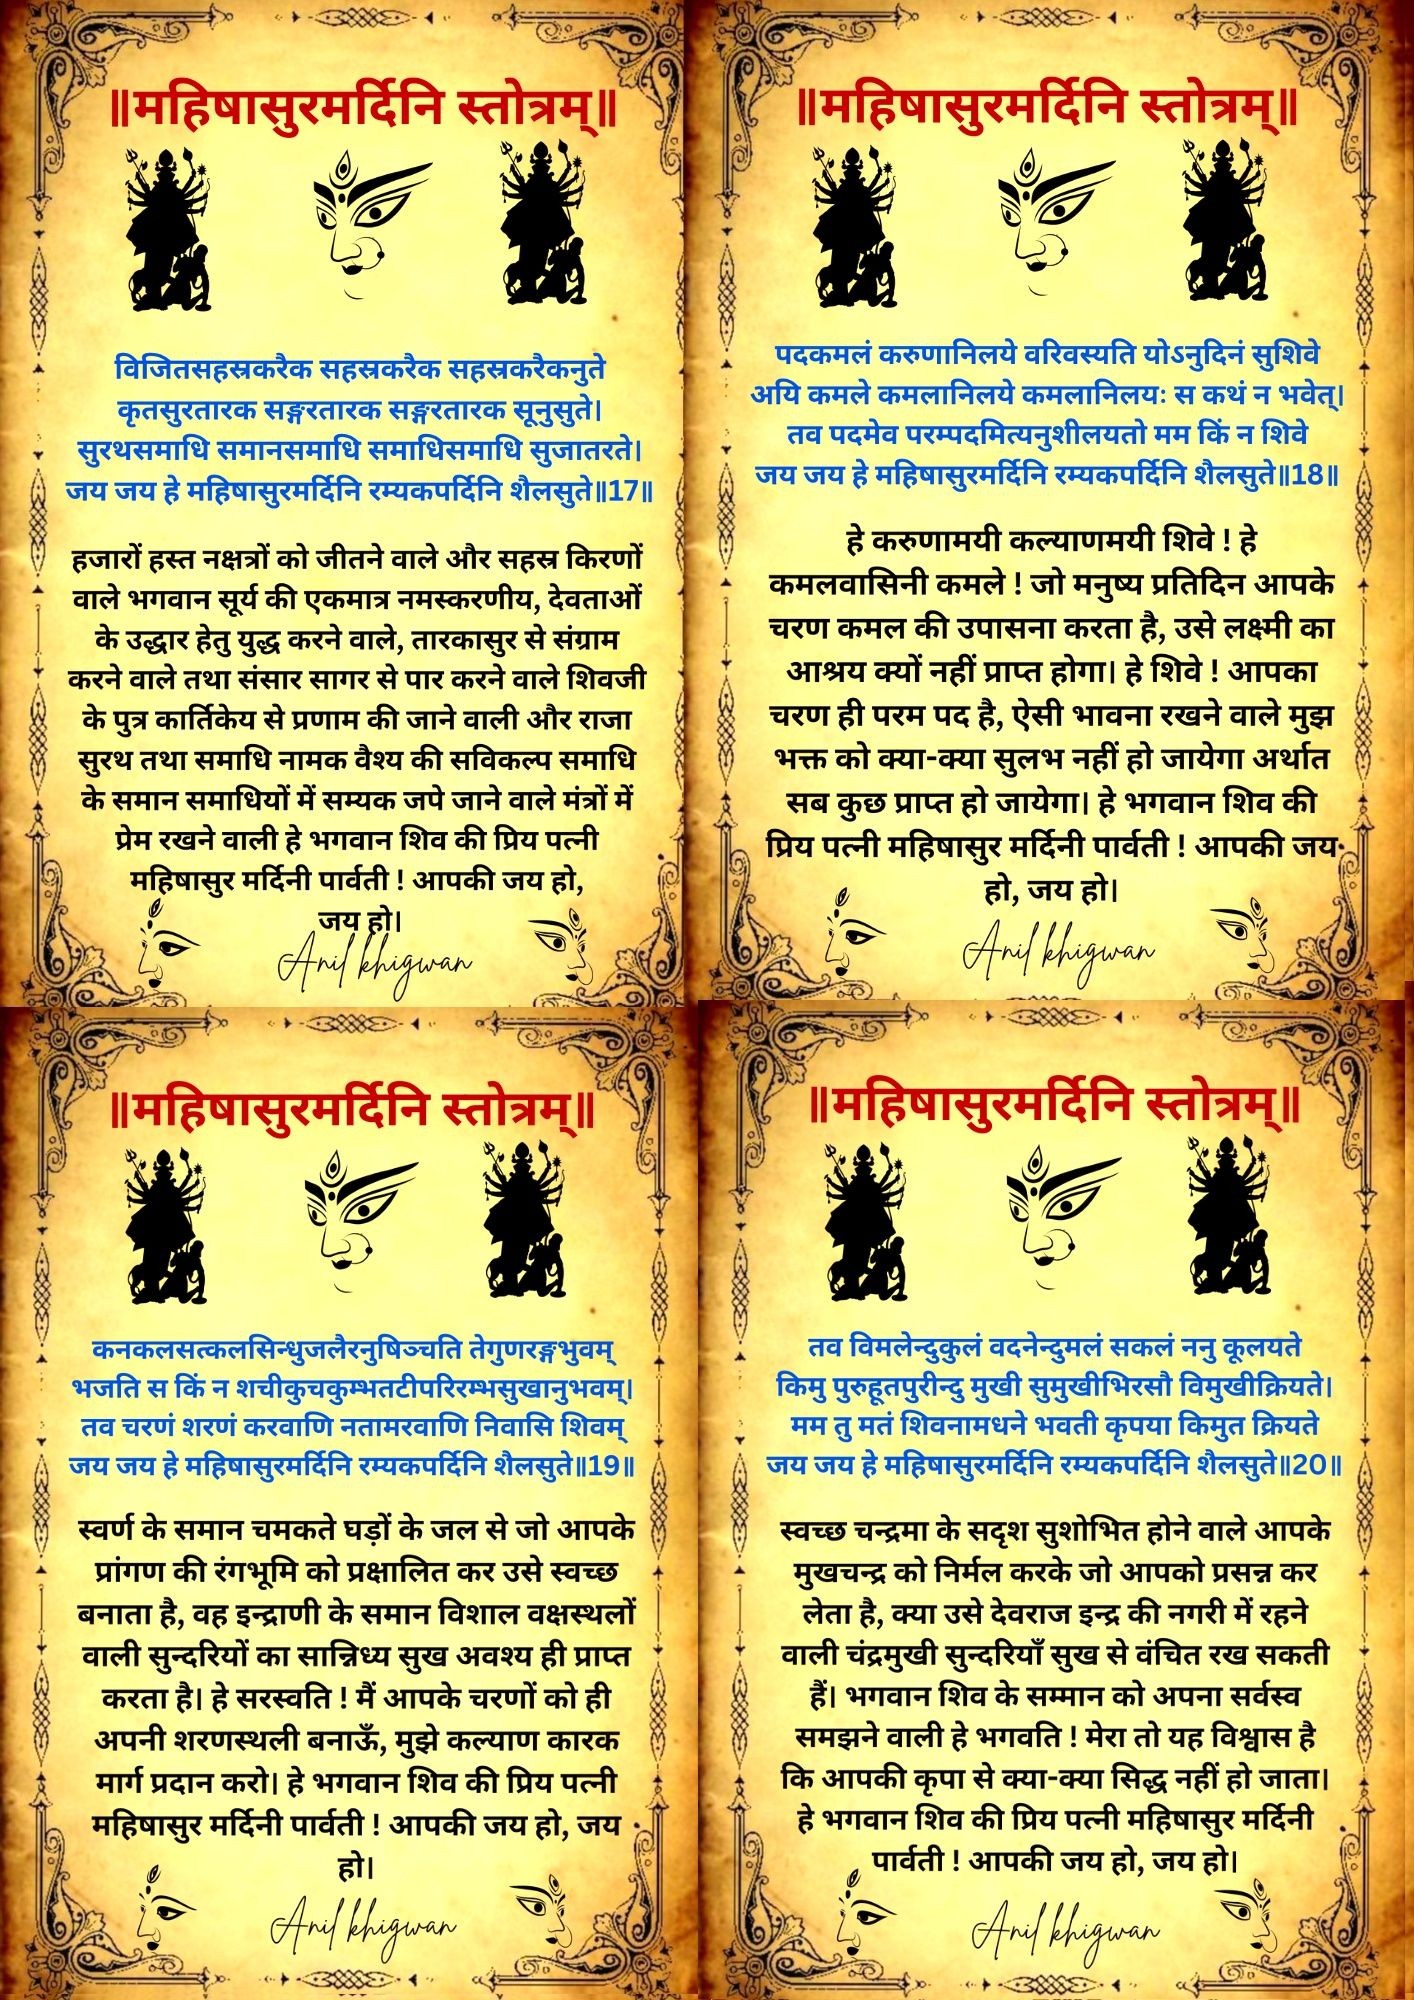 ॥महिषासुरमर्दिनि स्तोत्रम्॥
विजितसहस्रकरैक सहस्रकरैक सहस्रकरैकनुते
कृतसुरतारक सङ्गरतारक सङ्गरतारक सूनुसुते।
सुरथसमाधि समानसमाधि समाधिसमाधि सुजातरते।
जय जय हे महिषासुरमर्दिनि रम्यकपर्दिनि शैलसुते॥17॥
हजारों हस्त नक्षत्रों को जीतने वाले और सहस्र किरणों
वाले भगवान सूर्य की एकमात्र नमस्करणीय, देवताओं
के उद्धार हेतु युद्ध करने वाले, तारकासुर से संग्राम
करने वाले तथा संसार सागर से पार करने वाले शिवजी
के पुत्र कार्तिकेय से प्रणाम की जाने वाली और राजा
सुरथ तथा समाधि नामक वैश्य की सविकल्प समाधि
के समान समाधियों में सम्यक जपे जाने वाले मंत्रों में
प्रेम रखने वाली हे भगवान शिव की प्रिय पत्नी
महिषासुर मर्दिनी पार्वती ! आपकी जय हो,
जय हो।
Anil khigwan
॥महिषासुरमर्दिनि स्तोत्रम्॥
पदकमलं करुणानिलये वरिवस्यति योऽनुदिनं सुशिवे
अयि कमले कमलानिलये कमलानिलयः स कथं न भवेत्।
तव पदमेव परम्पदमित्यनुशीलयतो मम किं न शिवे
जय जय हे महिषासुरमर्दिनि रम्यकपर्दिनि शैलसुते॥18॥
हे करुणामयी कल्याणमयी शिवे ! हे
कमलवासिनी कमले ! जो मनुष्य प्रतिदिन आपके
चरण कमल की उपासना करता है, उसे लक्ष्मी का
आश्रय क्यों नहीं प्राप्त होगा। हे शिवे ! आपका
चरण ही परम पद है, ऐसी भावना रखने वाले मुझ
भक्त को क्या-क्या सुलभ नहीं हो जायेगा अर्थात
सब कुछ प्राप्त हो जायेगा। हे भगवान शिव की
प्रिय पत्नी महिषासुर मर्दिनी पार्वती ! आपकी जय
हो, जय हो।
Anil khigwan
॥महिषासुरमर्दिनि स्तोत्रम्॥
कनकलसत्कलसिन्धुजलैरनुषिञ्चति तेगुणरङ्गभुवम्
भजति स किं न शचीकुचकुम्भतटीपरिरम्भसुखानुभवम्।
तव चरणं शरणं करवाणि नतामरवाणि निवासि शिवम्
जय जय हे महिषासुरमर्दिनि रम्यकपर्दिनि शैलसुते॥19॥
स्वर्ण के समान चमकते घड़ों के जल से जो आपके
प्रांगण की रंगभूमि को प्रक्षालित कर उसे स्वच्छ
बनाता है, वह इन्द्राणी के समान विशाल वक्षस्थलों
वाली सुन्दरियों का सान्निध्य सुख अवश्य ही प्राप्त
करता है। हे सरस्वति ! मैं आपके चरणों को ही
अपनी शरणस्थली बनाऊँ, मुझे कल्याण कारक
मार्ग प्रदान करो। हे भगवान शिव की प्रिय पत्नी
महिषासुर मर्दिनी पार्वती ! आपकी जय हो, जय
हो।
Anil khigwan
॥महिषासुरमर्दिनि स्तोत्रम्॥
तव विमलेन्दुकुलं वदनेन्दुमलं सकलं ननु कूलयते
किमु पुरुहूतपुरीन्दु मुखी सुमुखीभिरसौ विमुखीक्रियते।
मम तु मतं शिवनामधने भवती कृपया किमुत क्रियते
जय जय हे महिषासुरमर्दिनि रम्यकपर्दिनि शैलसुते॥20॥
स्वच्छ चन्द्रमा के सदृश सुशोभित होने वाले आपके
मुखचन्द्र को निर्मल करके जो आपको प्रसन्न कर
लेता है, क्या उसे देवराज इन्द्र की नगरी में रहने
वाली चंद्रमुखी सुन्दरियाँ सुख से वंचित रख सकती
हैं। भगवान शिव के सम्मान को अपना सर्वस्व
समझने वाली हे भगवति ! मेरा तो यह विश्वास है
कि आपकी कृपा से क्या-क्या सिद्ध नहीं हो जाता।
हे भगवान शिव की प्रिय पत्नी महिषासुर मर्दिनी
पार्वती ! आपकी जय हो, जय हो।
Anil khigwan